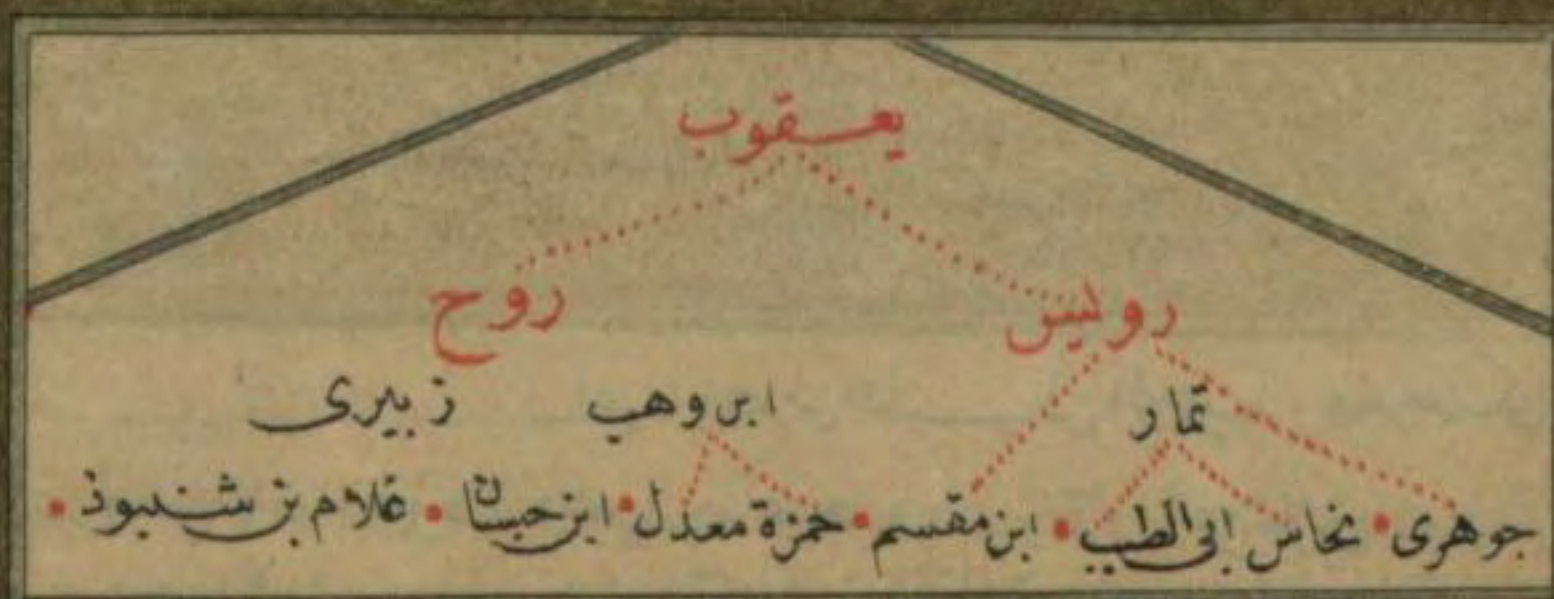 يعقوب
رويس روح
تمار ابن وهب زبيرى
جوهرى • نخاس ابى الطيب • ابن مقسم • حمزة معدل • ابن حبسان • غلام بن شنبوذ •